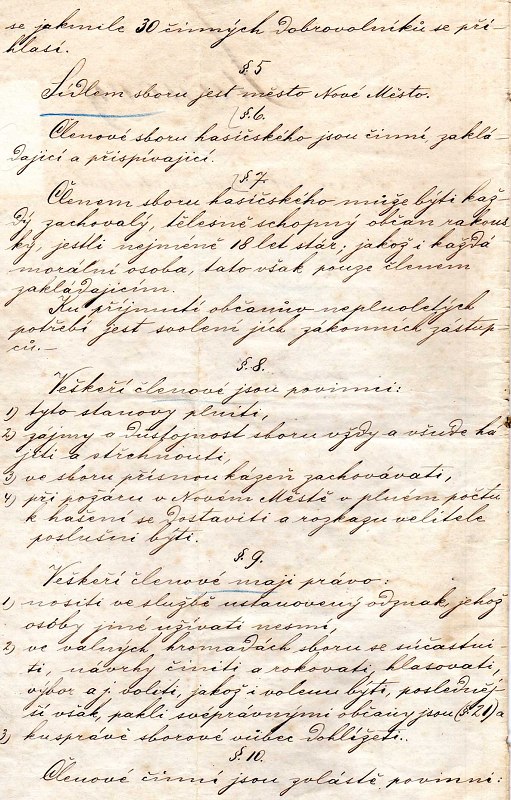 se jakmile 30 činných dobrovolníků se při-
hlasí.
§. 5
Sídlem sboru jest město Nové Město.
§. 6.
Členové sboru hasičského jsou činní, zaklá-
dající a přispívající.
§. 7.
Členem sboru hasičského může býti kaž-
dý zachovalý, tělesně schopný občan rakous-
ký, jestli nejméně 18 let stár; jakož i každá
morální osoba, tato však pouze členem
zakládajícím.
Ku přijmutí občanův neplnoletých
potřebí jest svolení jich zákonních zástup-
ců.-
§. 8.
Veškeří členové jsou povinni:
1) tyto stanovy plniti,
2) zájmy a důstojnost sboru vždy a všude há
jiti a střehnouti,
3) ve sboru přísnou kázeň zachovávati,
4) při požáru v Novém Městě v plném počtu
k hašení se dostaviti a rozkazu velitele
poslušni býti.
§. 9.
Veškeří členové mají právo:
1) nositi ve službě ustanovený odznak, jehož
osoby jiné užívati nesmí,
2) ve valných hromadách sboru se súčastni
ti, návrhy činiti a rokovati, hlasovati,
výbor a j. voliti, jakož i volenu býti, posledněj-
ší však, pakli svéprávnými občany jsou (§. 21) a
3) ku správě sborové vůbec dohlížeti..
§. 10.
Členové činní jsou zvláště povinni: